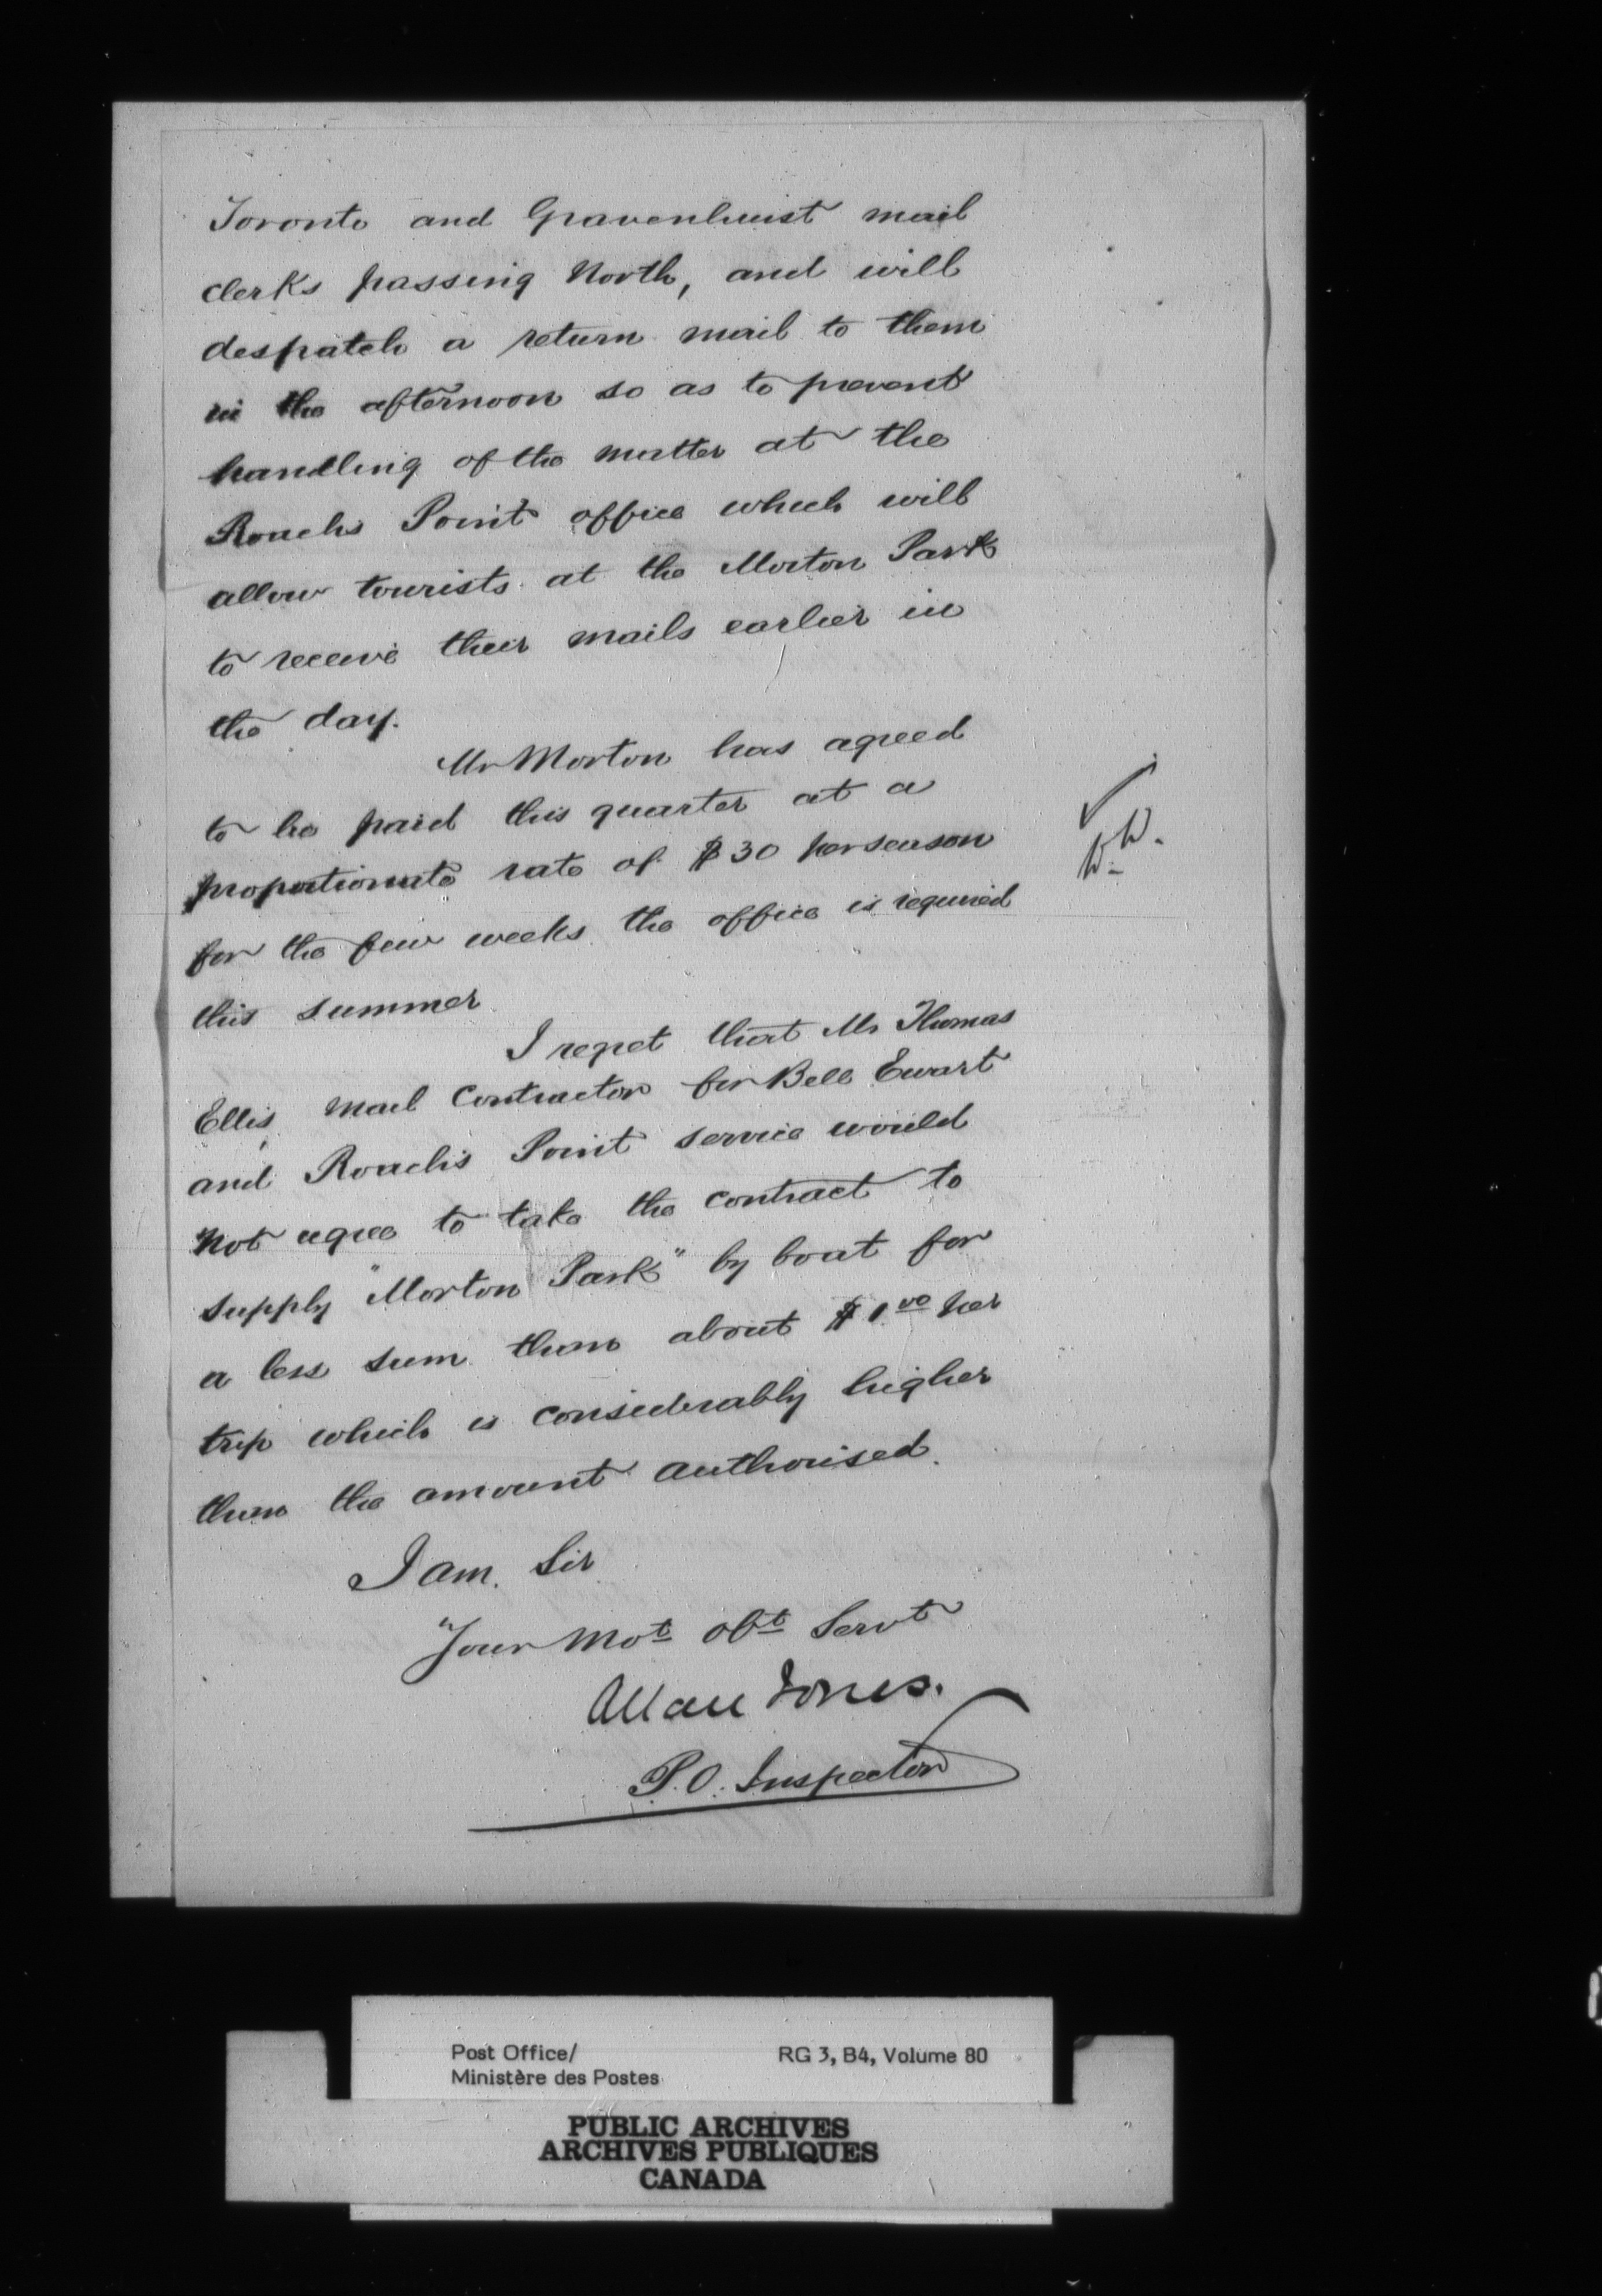 Toronto and Gravenhurst mail
clerks passing North, and will
despatch a return mail to them
in the afternoon so as to prevent
handling of the matter at the
Roachs Point office which will
allow tourists at the Morton Park
to receive their mails earlier in
the day.
Mr Morton has agreed
to be paid this quarter at a
proportionate rate of $30 per season
for the few weeks the office is required
this summer
I regret that Mr Thomas
Ellis, mail Contractor for Bell Ewart
and Roach's Point service would
not agree to take the contract to
supply "Morton Park" by boat for
a less sum than about $1.00 per
trip which is considerably higher
than the amount authorised.
I am. Sir
Your Mot Obt Servt
Allan Jones.
P.O. Inspector
Post Office/ RG 3, B4, Volume 80
Ministère des Postes
PUBLIC ARCHIVES
ARCHIVES PUBLIQUES
CANADA